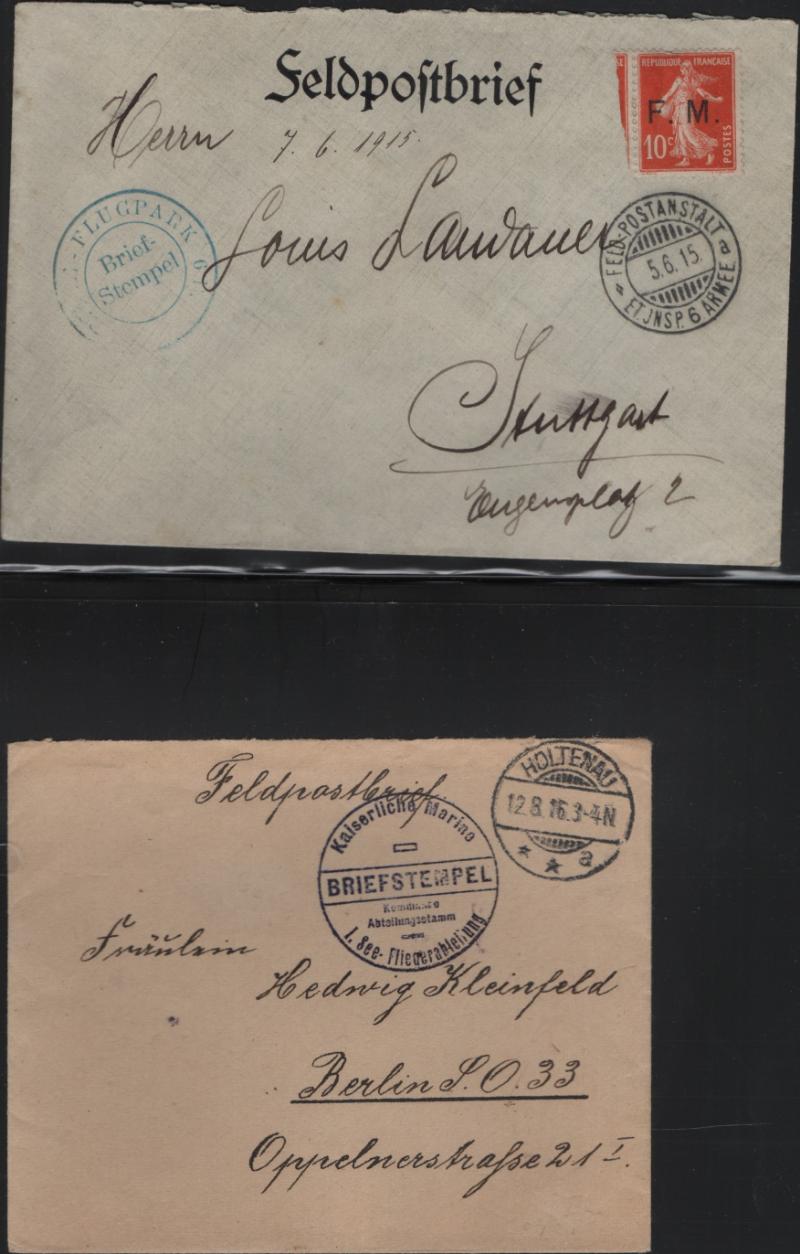 Feldpostbrief
RÉPUBLIQUE FRANÇAISE
F. M.
10c
POSTES
Herrn 7. 6. 1915.
-FLUGPARK 6
Brief-
Stempel
Louis Landauer
FELD-POSTANSTALT a
5.6.15.
ET.JNSP. 6 ARMEE
Stuttgart
Eugensplatz 2
HOLTENAU
12.8.16.3-4N
* * a
Feldpostbrief
Kaiserliche Marine
BRIEFSTEMPEL
Kommando
Abteilungsstamm
I. See-Fliegerabteilung
Fräulein
Hedwig Kleinfeld
Berlin S.O. 33
Oppelnerstraße 21 I.